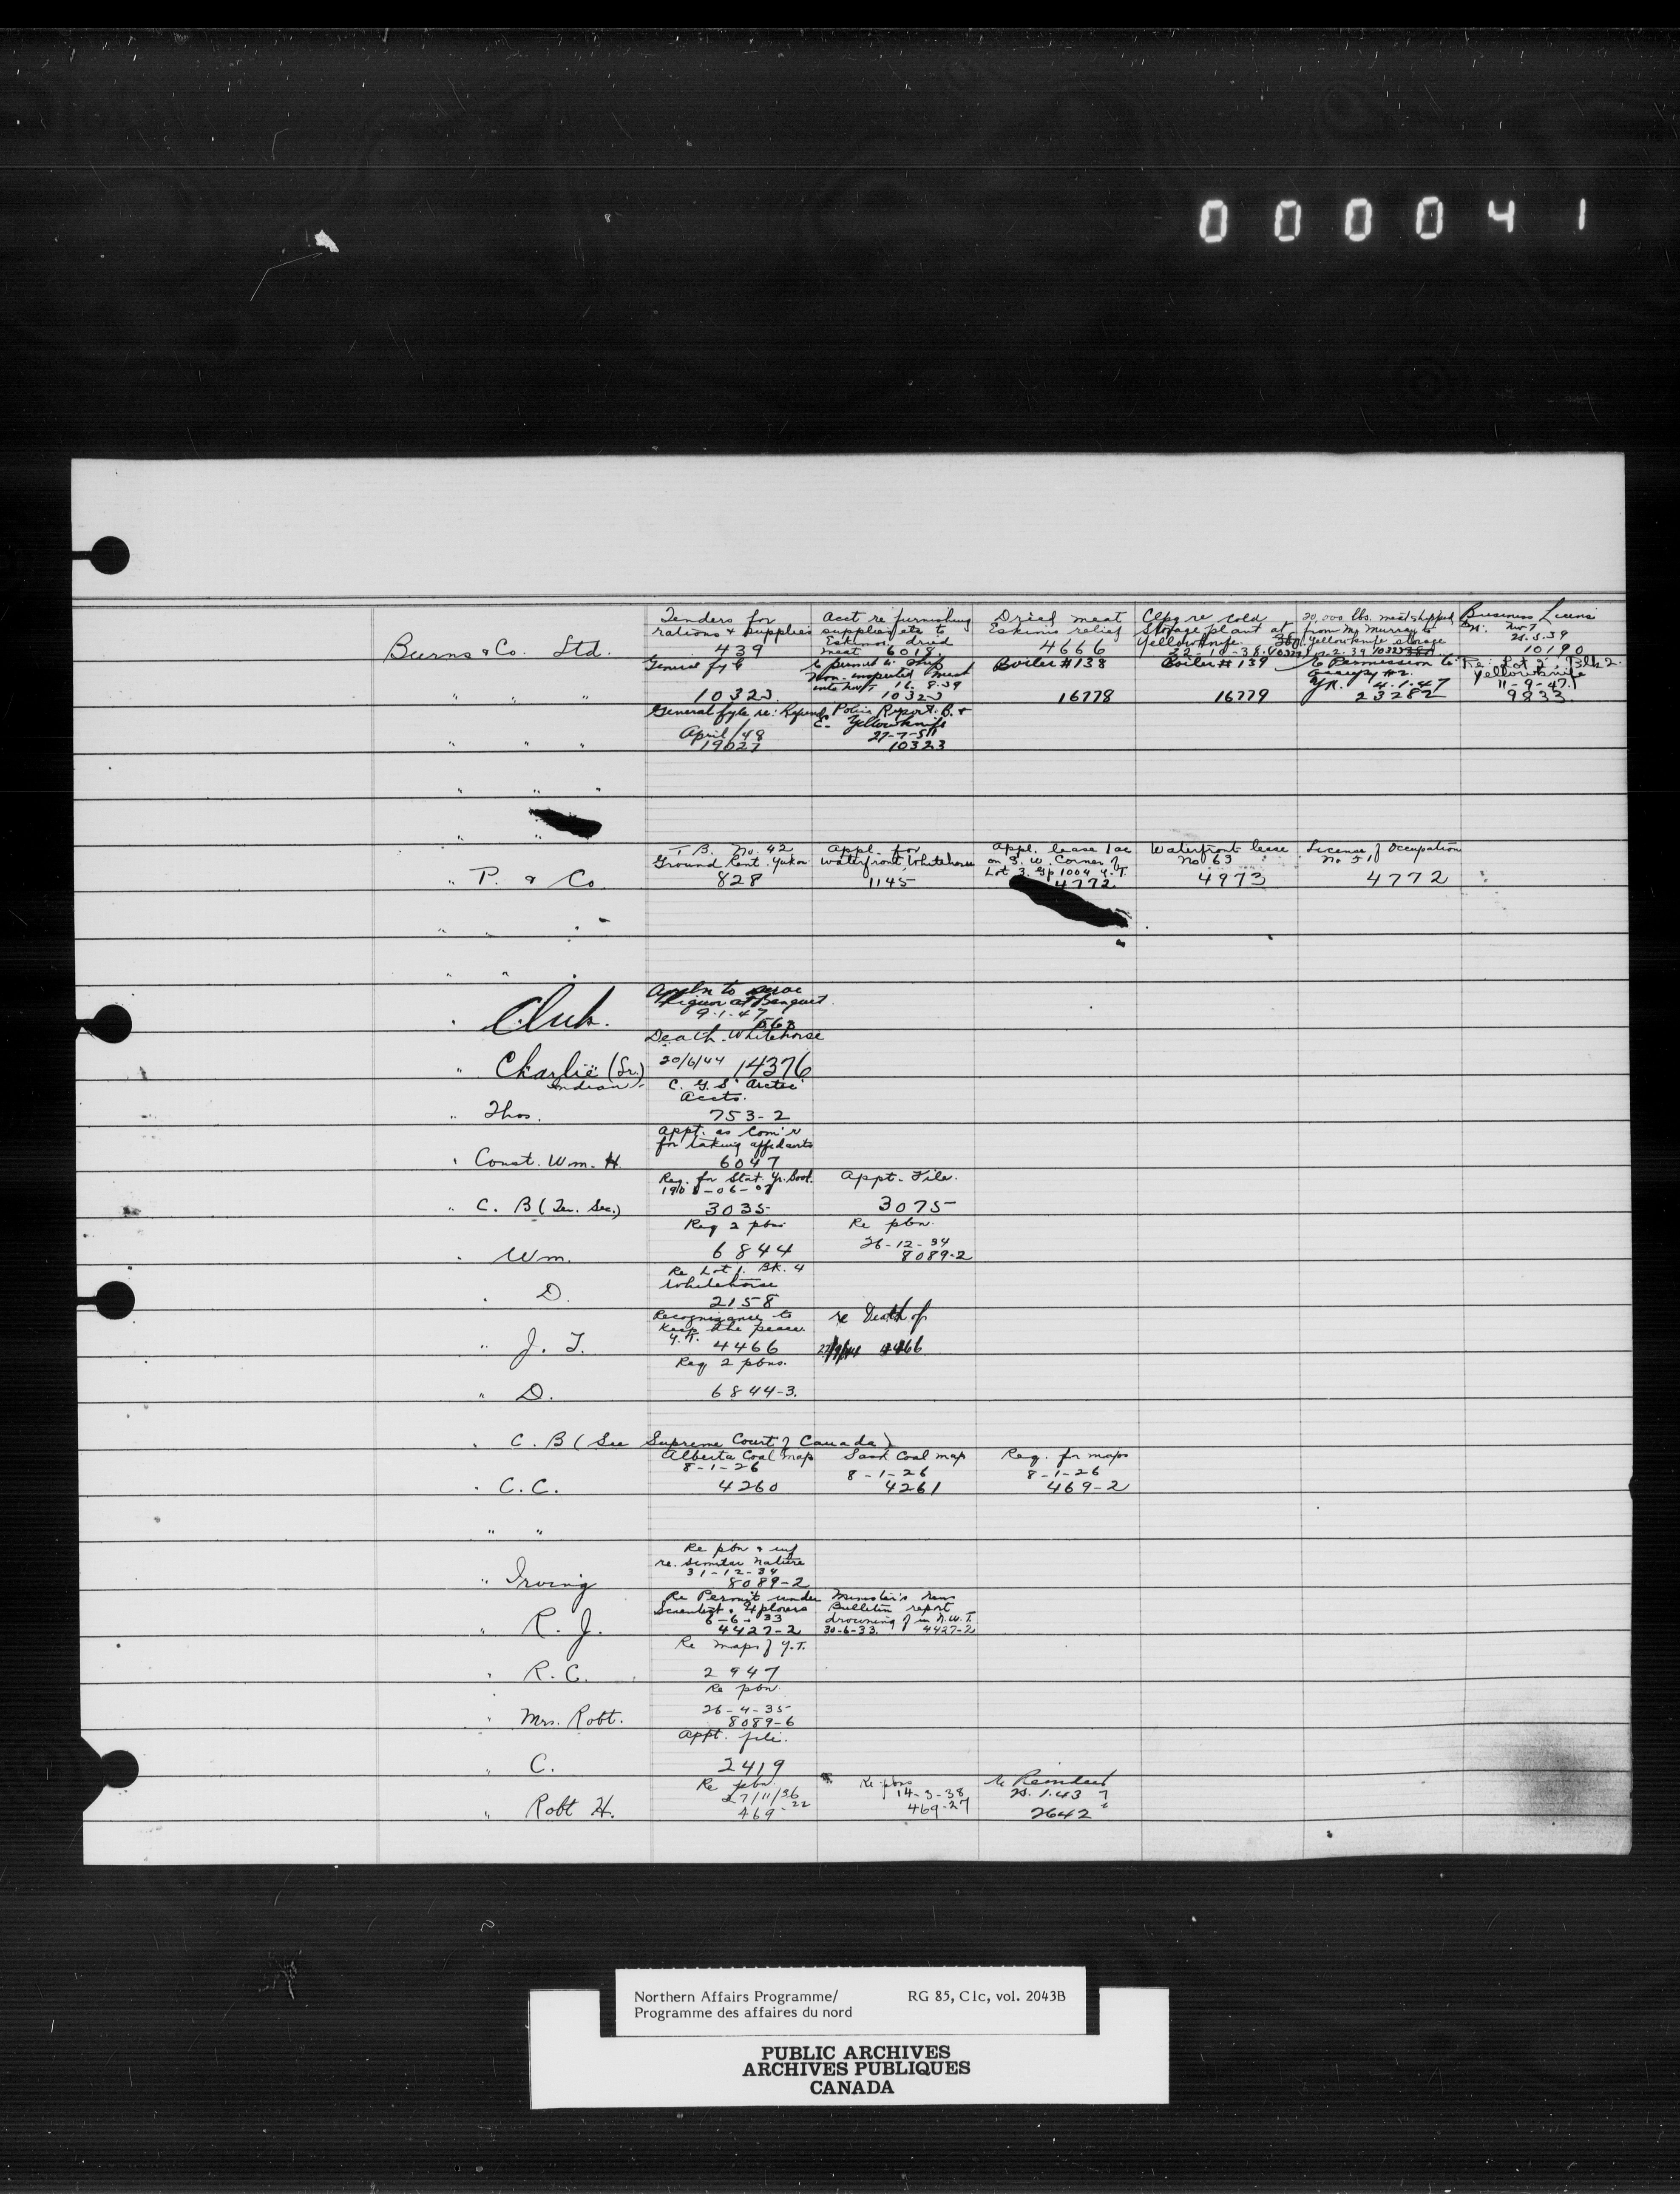 000041
Tenders for
rations & supplies
439
Acct re furnishing
supplies etc to
Eskimos, dried
meat 6018
Dried meat
Eskimo relief
4666
Clpg re cold
Storage plant at
Yellowknife.
22-10-38.
20,000 lbs. meat shipped
from McMurray to
Yellowknife storage
Business License
N.W.T
10190
Burns & Co. Ltd.
General fyle
10323
Re permit to ship
Non-inspected Meat
into NWT 16-8-39
10323
Boiler #138
16778
Boiler #139
16779
Re Permission to
occupy
4-1-47
23282
Re: Lot 2, Blk 2
Yellowknife
11-9-47
9833
" " "
General fyle re: Refunds
April/48
19027
Police Report. B. &
E. Yellowknife
10323
" " "
" " "
" "
" P. & Co.
T.B. No. 42
Ground Rent. Yukon
828
Appl. for
waterfront, Whitehorse
1145
Appl. lease 1 ac
on S. W. Corner of
Lot 3. Gp 1004 Y.T.
4772
Waterfront lease
No 63
4973
License of Occupation
No 51
4772
" " "
" " "
" Club.
Appln to serve
Liquor at Banquet
9-1-47
" Charlie (Sr.)
Indian
Death - Whitehorse
20/6/44 14376
" Thos.
C. G. S. Arctic
Accts.
753-2
" Const. Wm. H.
Appt. as Com'r
for taking affidavits
6047
" C. B (Ter. Sec.)
Req. for Stat. Yr. Book.
3035
Appt. File.
3075
" Wm.
Req 2 pbns
6844
Re pbn.
26-12-34
8089-2
" D.
Re Lot 1. Bk. 4
Whitehorse
2158
" J. T.
Recognizance to
keep the peace.
Y.T. 4466
re Death of
4466
" D.
Req 2 pbns.
6844-3.
" C. B (See Supreme Court of Canada)
" C. C.
Alberta Coal map
8-1-26
4260
Sask Coal map
8-1-26
4261
Req. for maps
8-1-26
469-2
" "
" Irving
Re pbn & inf
re. similar nature
31-12-34
8089-2
" R. J.
Re Permit under
Scientist & Xplorers
6-6-33
4427-2
Minister's News
Bulletin report
drowning of in N.W.T.
30-6-33. 4427-2
" R. C.
Re maps of Y.T.
2947
" Mrs. Robt.
Re pbn.
26-4-35
8089-6
" C.
Appt. file.
2419
" Robt H.
Re pbn.
27/11/36
469-22
Re pbns
14-3-38
469-27
Re Reindeer
2642
Northern Affairs Programme/ RG 85, C1c, vol. 2043B
Programme des affaires du nord
PUBLIC ARCHIVES
ARCHIVES PUBLIQUES
CANADA